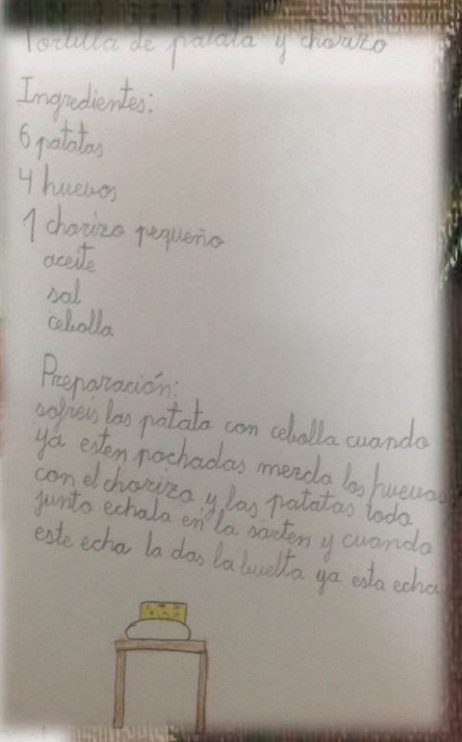 Tortilla de patata y chorizo
Ingredientes:
6 patatas
4 huevos
1 chorizo pequeño
aceite
sal
cebolla
Preparación:
sofreis las patata con cebolla cuando
ya esten pochadas mezcla los huevos
con el chorizo y las patatas todo
junto echala en la sarten y cuando
este echa la das la buelta ya esta echa